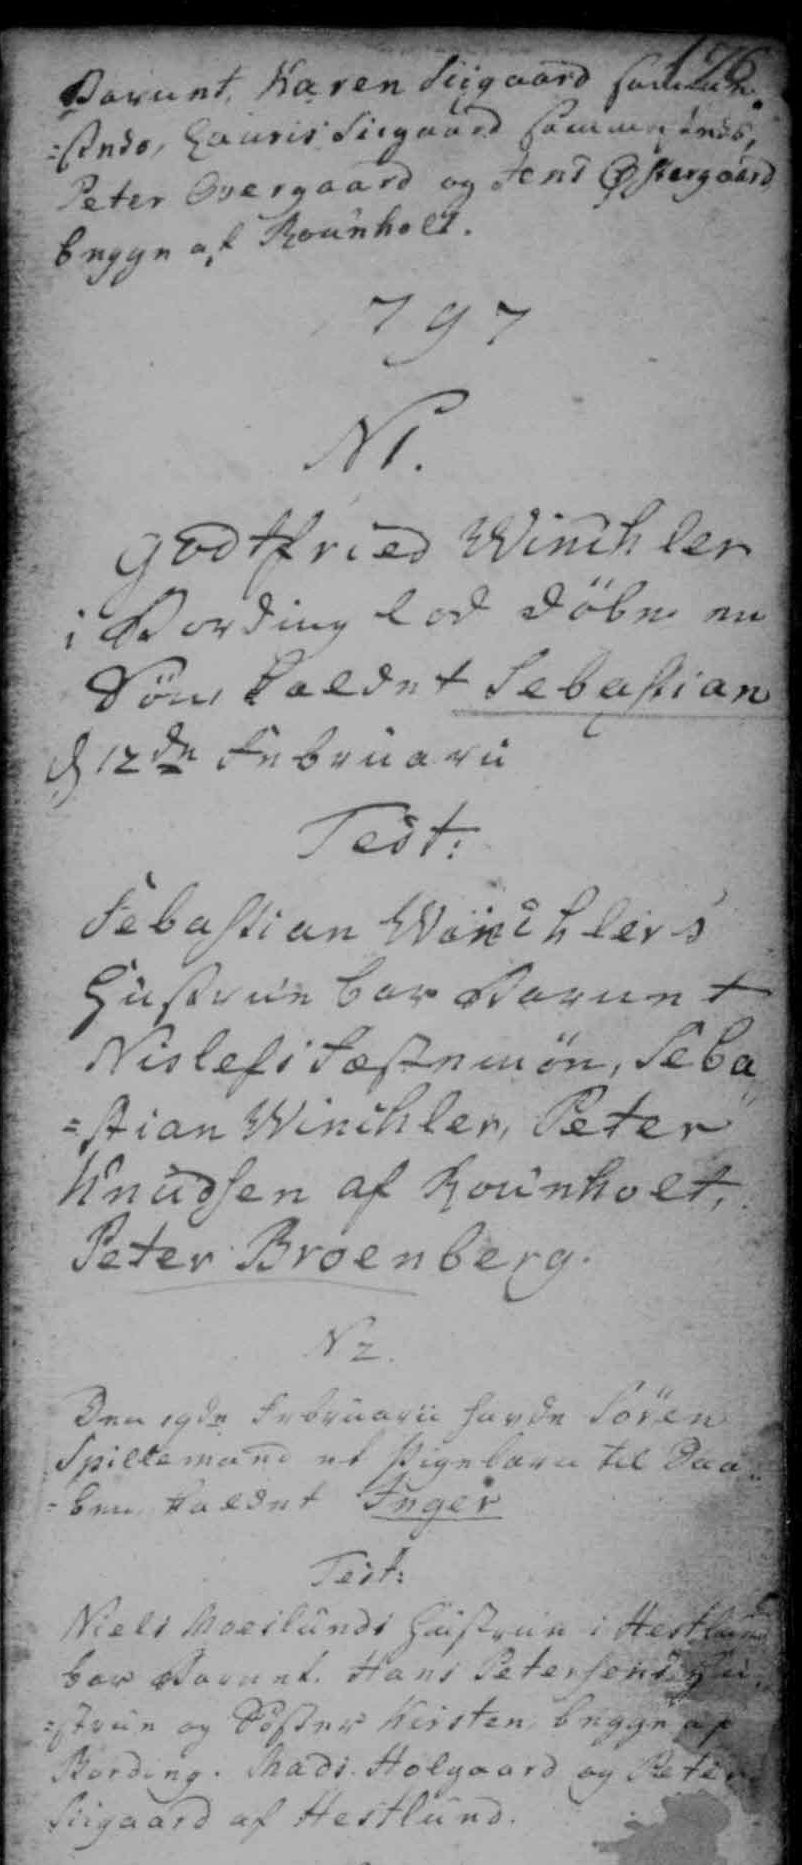 176
Barunt, Karen Siigaard sammen
=steds, Lauris Siigaard sammesteds,
Peter Overgaard og Jens Østergaard
begge af Rounholt.
797
N1.
Godtfried Winchler
i Bording lod döbe en
Sön kaldet Sebastian
d 12de Februarii
Test:
Sebastian Winchlers
Hustrue bar Barnet
Fæstemön, Seba
=stian Winchler, Peter
Knudsen af Rounholt,
Peter Broenberg.
N2.
Den 19de Februarii havde Sören
Spillemand et Pigebarn til Daa
=ben kaldet Inger
Test:
Niels Moeslunds Hustrue i Hestlund
bar Barnet. Hans Petersens Hu
=strue og Söster Kirsten begge af
Bording. Mads Holgaard og Peter
Siigaard af Hestlund.